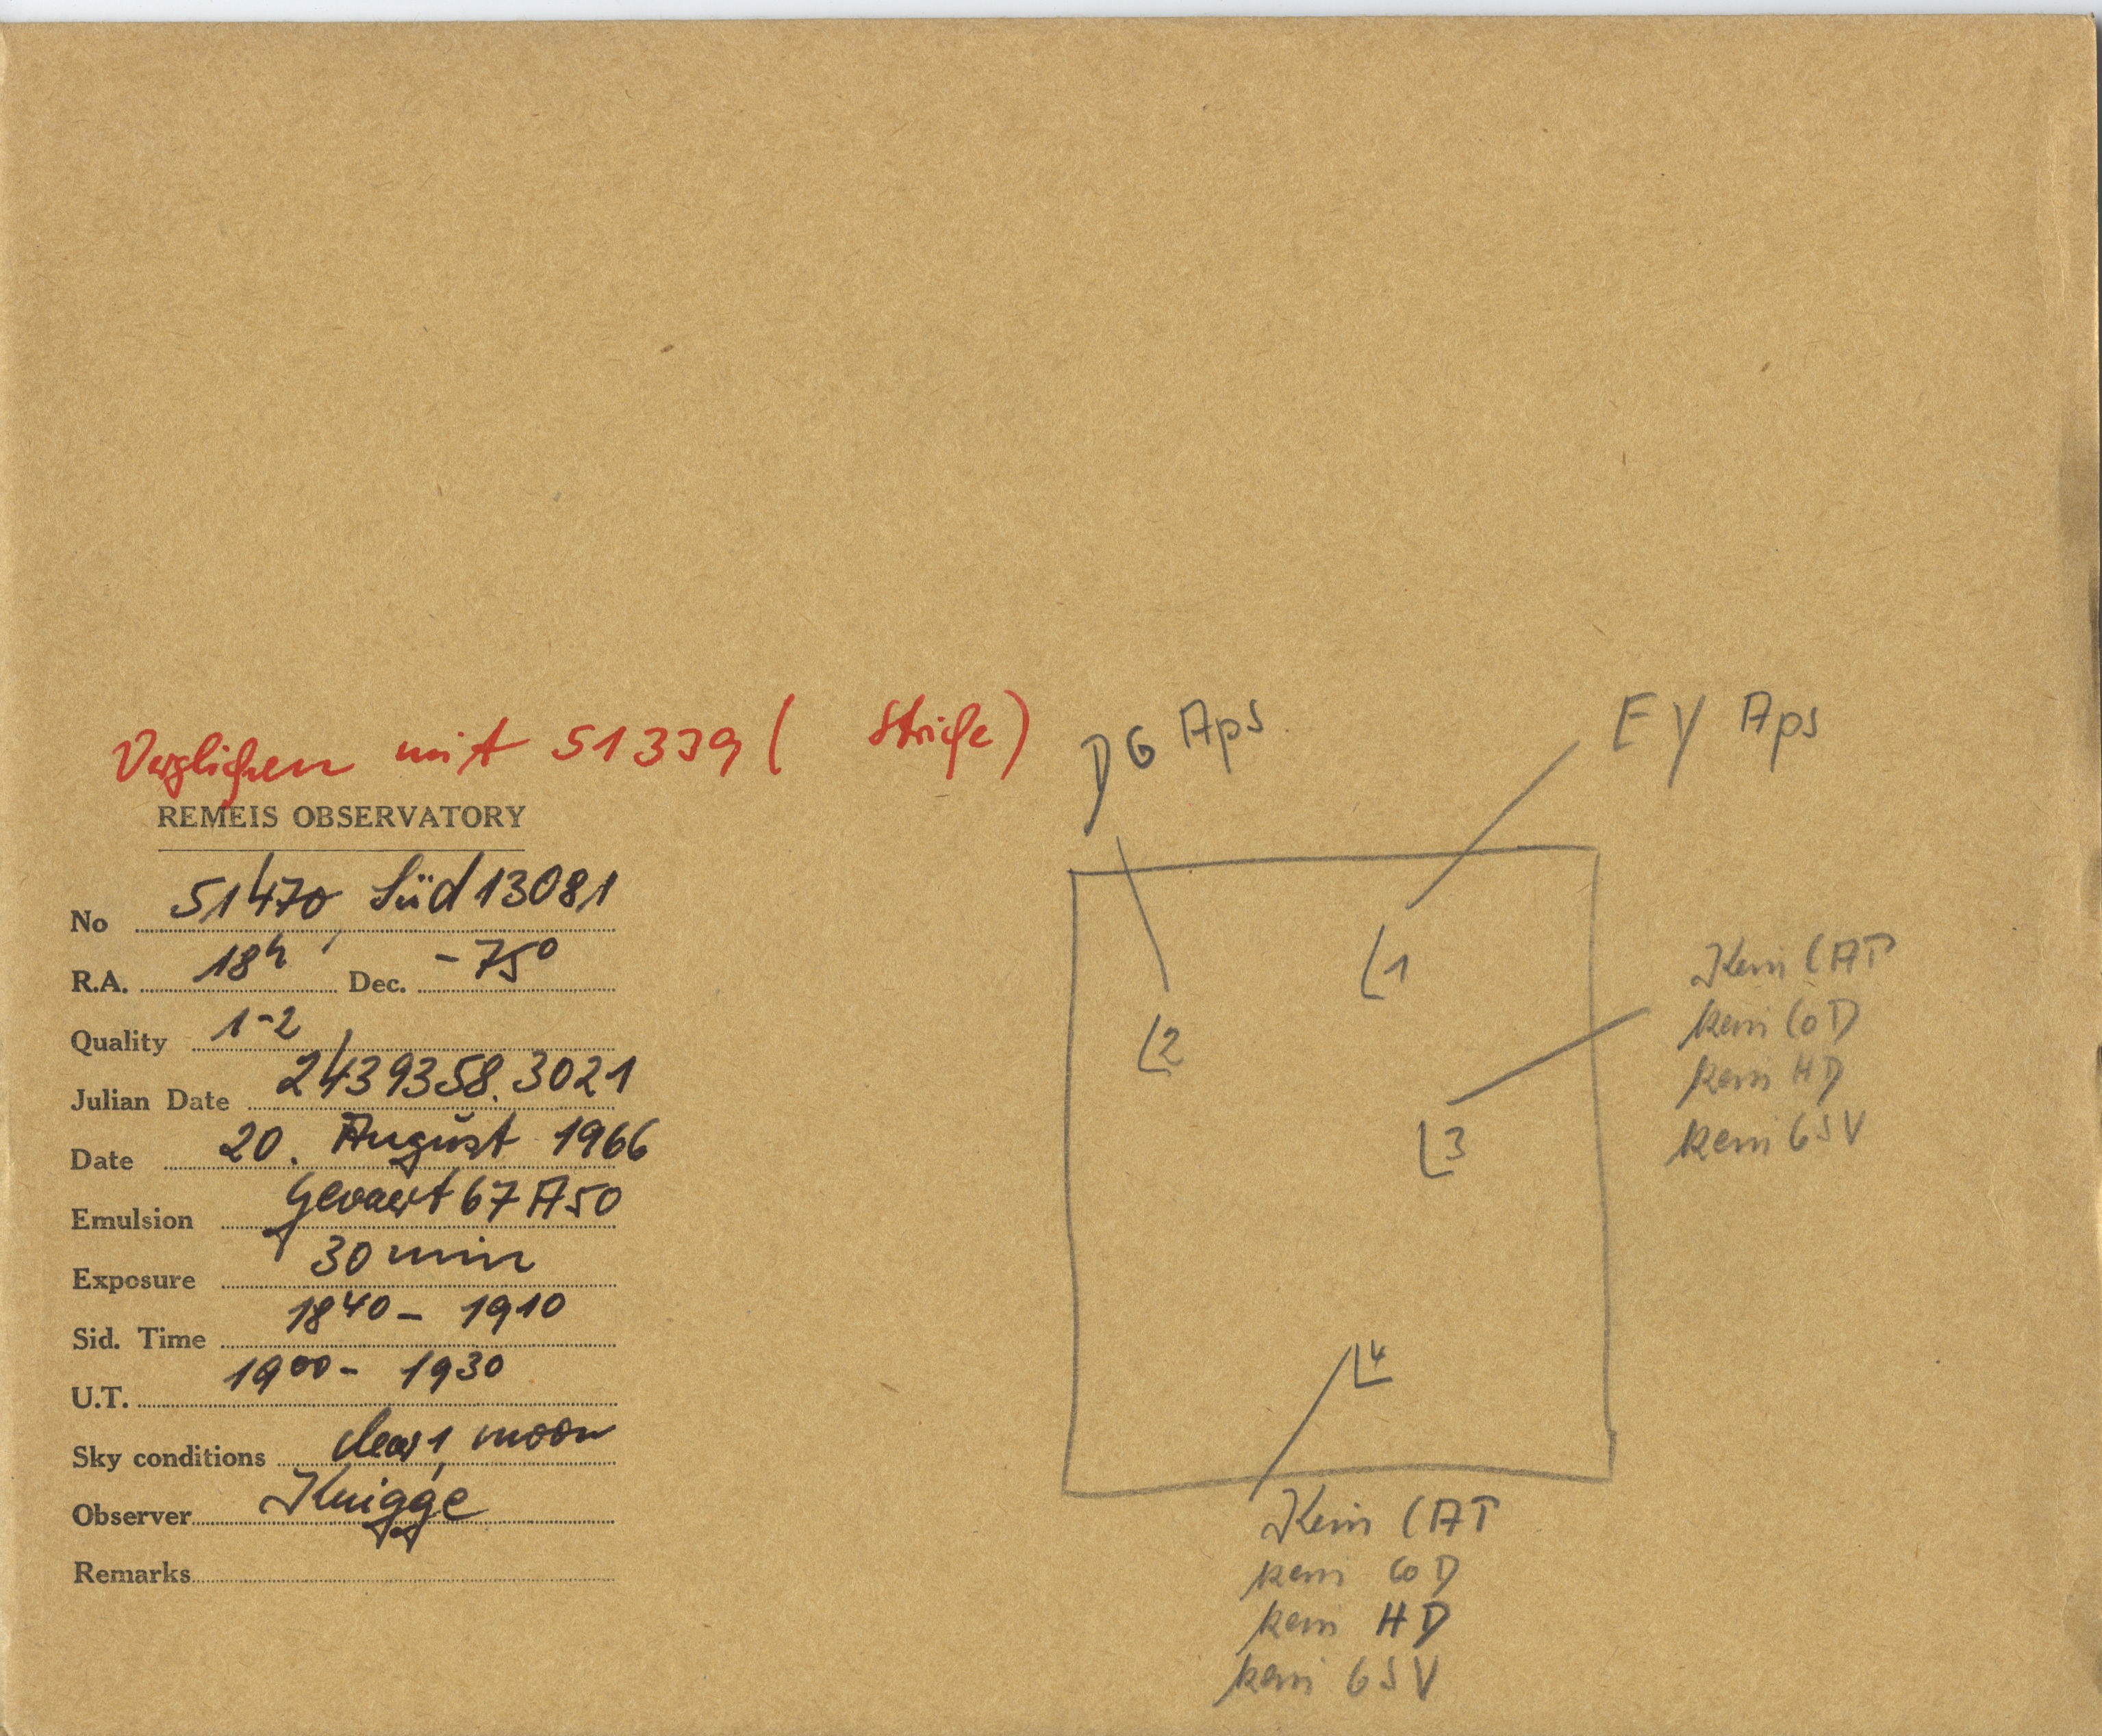 Verglichen mit 51339 ( Striche)
REMEIS OBSERVATORY
No 51470, Süd 13081
R.A. 18h Dec. -75°
Quality 1-2
Julian Date 2439358.3021
Date 20. August 1966
Emulsion Gevaert 67A50
Exposure 30 min
Sid. Time 18 40 - 19 10
U.T. 19 00 - 19 30
Sky conditions clear, moon
Observer Knigge
Remarks
DG Aps
EY Aps
1
2
3
4
Kein CAT
kein CoD
kein HD
kein GSV
Kein CAT
kein CoD
kein HD
kein GSV